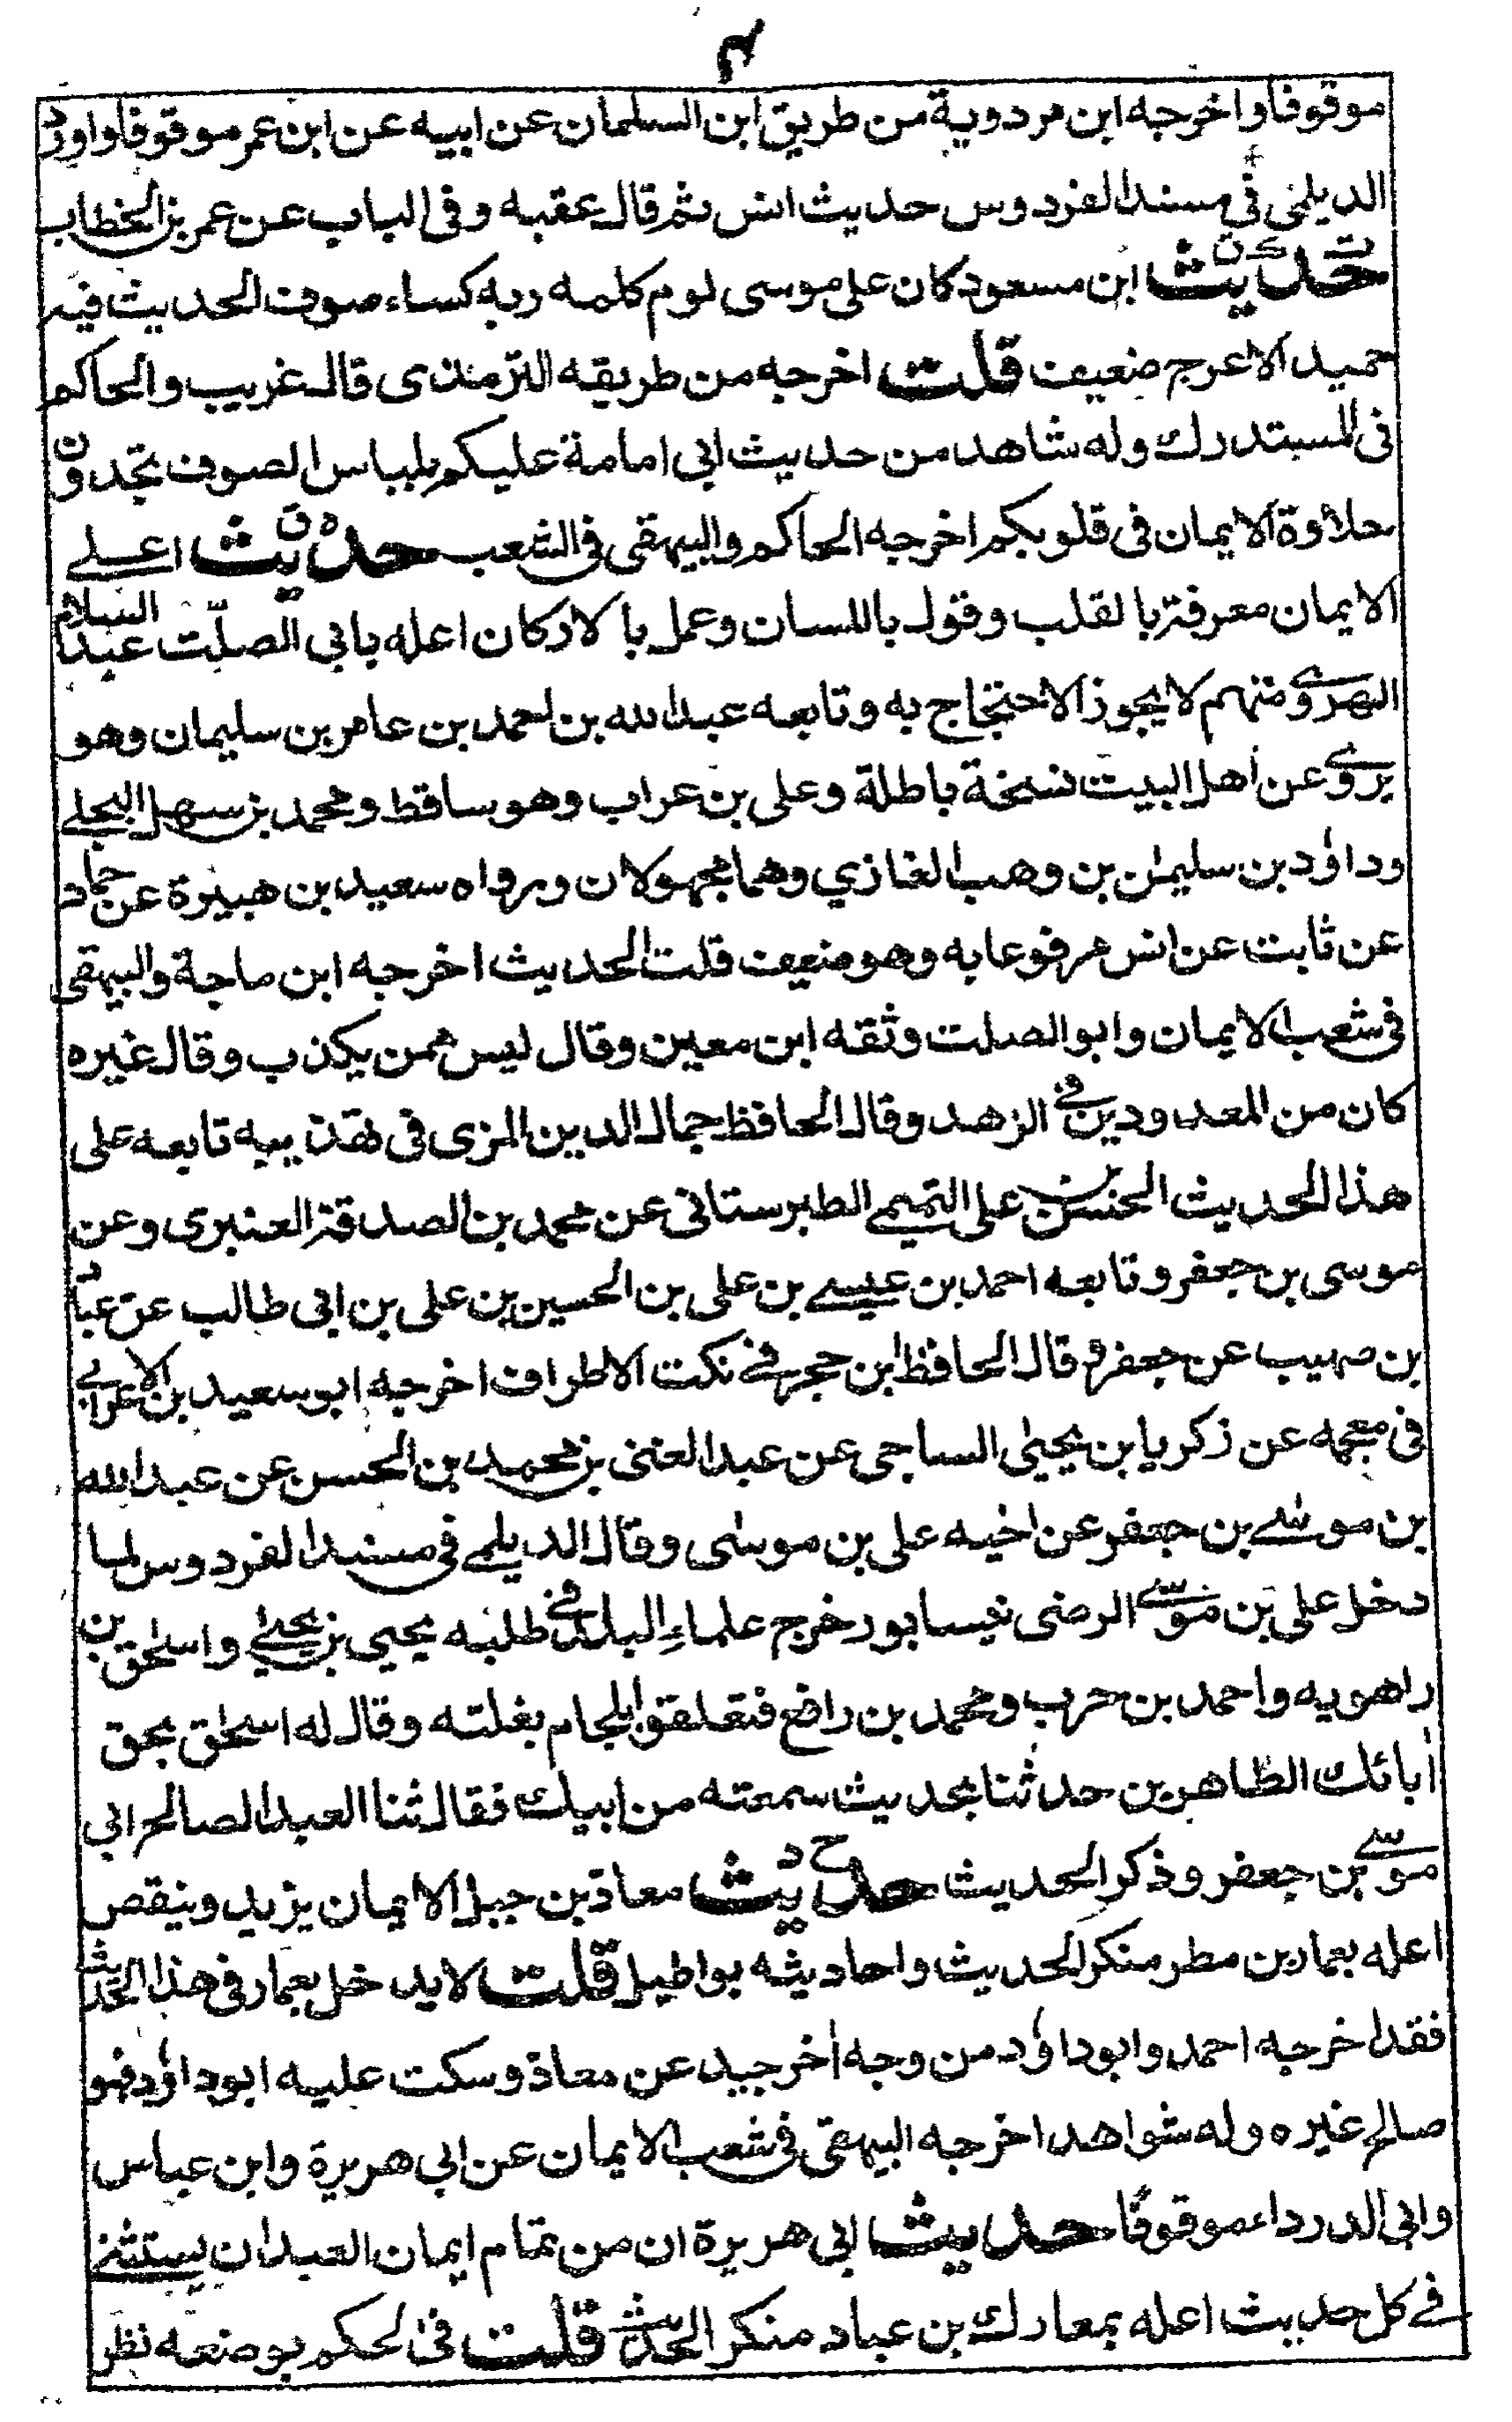 ٣
موقوفا واخرجه ابن مردوية من طريق ابن السلمان عن ابيه عن ابن عمر موقوفا واورد
الديلمى فى مسند الفردوس حديث انس ثم قال عقبه وفى الباب عن عمر بن الخطاب
حديث ابن مسعود كان على موسى يوم كلمه ربه كساء صوف الحديث فيه
حميد الاعرج ضعيف قلت اخرجه من طريقه الترمذى قال غريب والحاكم
فى المستدرك وله شاهد من حديث ابى امامة عليكم بلباس الصوف تجدون
حلاوة الايمان فى قلوبكم اخرجه الحاكم والبيهقى فى الشعب حديث اعلے
الايمان معرفة بالقلب وقول باللسان وعمل بالاركان اعله بابى الصلت عبد السلام
الهروى متهم لا يجوز الاحتجاج به وتابعه عبد الله بن احمد بن عامر بن سليمان وهو
يروى عن اهل البيت نسخة باطلة وعلى بن عراب وهو ساقط ومحمد بن سهل البجلے
وداؤد بن سليمٰن بن وهب الغازي وهما مجهولان ورواه سعيد بن هبيرة عن حماد
عن ثابت عن انس مرفوعا به وهو ضعيف قلت الحديث اخرجه ابن ماجة والبيهقى
فى شعب الايمان وابو الصلت وثقه ابن معين وقال ليس ممن يكذب وقال غيره
كان من المعدودين فے الزهد وقال الحافظ جمال الدين المزى فى تهذيبه تابعه على
هذا الحديث الحسن بن على التميمے الطبرستانى عن محمد بن الصدقة العنبرى وعن
موسى بن جعفر وتابعه احمد بن عيسے بن على بن الحسين بن على بن ابى طالب عن عباد
بن صهيب عن جعفر قال الحافظ ابن حجر فے نكت الاطراف اخرجه ابو سعيد بن الاعرابے
فى معجمه عن زكريا بن يحيىٰ الساجى عن عبد الغنى بن محمد بن الحسن عن عبد الله
بن موسٰے بن جعفر عن اخيه على بن موسٰى وقال الديلمے فى مسند الفردوس لما
دخل على بن موسٰے الرضى نيسابور خرج علماء البلد فے طلبه يحيى بن يحيىٰ واسحٰق بن
راهويه واحمد بن حرب ومحمد بن رافع فتعلقوا بلجام بغلته وقال له اسحٰق بحق
اٰبائك الطاهرين حدثنا بحديث سمعته من ابيك فقال ثنا العبد الصالح ابى
موسٰے بن جعفر وذكر الحديث حديث معاذ بن جبل الايمان يزيد وينقص
اعله بعمار بن مطر منكر الحديث واحاديثه بواطيل قلت لا يدخل بعمار فى هذا الحديث
فقد اخرجه احمد وابو داؤد من وجه اٰخر جيد عن معاذ وسكت عليه ابو داؤد فهو
صالح غيره وله شواهد اخرجه البيهقى فى شعب الايمان عن ابى هريرة وابن عباس
وابى الدرداء موقوفا حديث ابى هريرة ان من تمام ايمان العبد ان يستثنے
فے كل حديث اعله بمعارك بن عباد منكر الحديث قلت فى الحكم بوضعه نظر